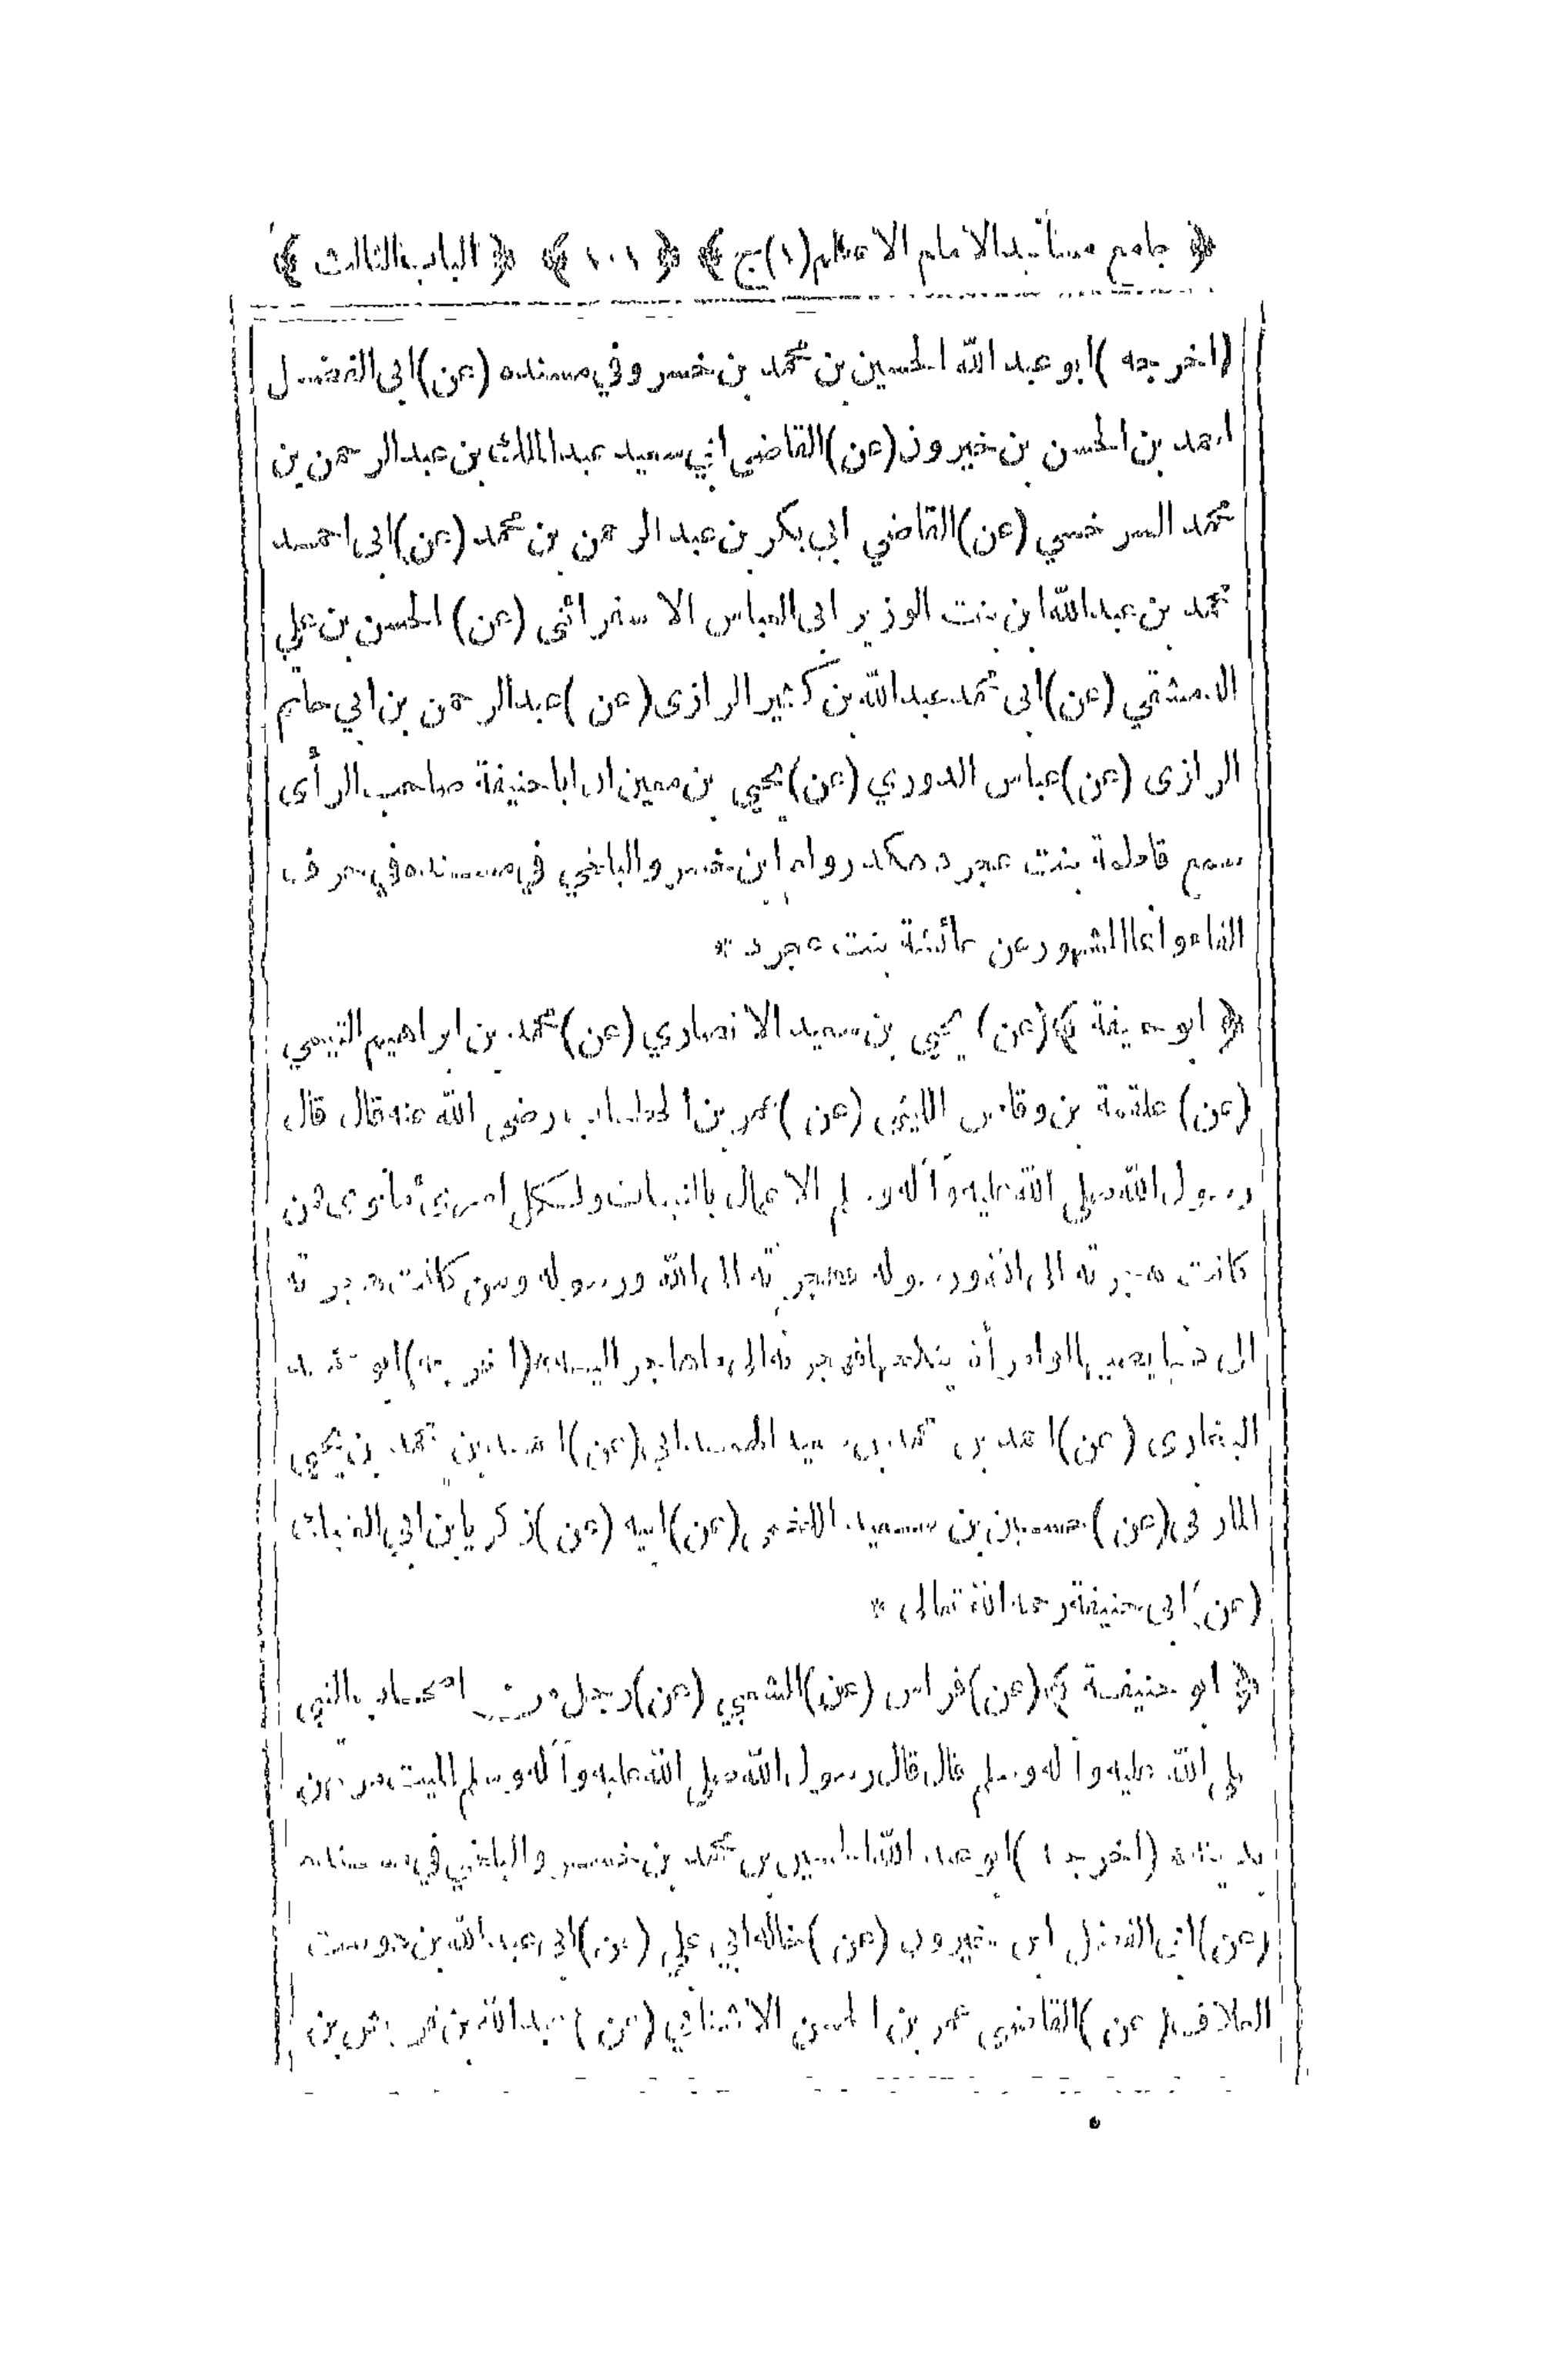 ﴿ جامع مسانيد الامام الاعظم (١) ج ﴾ ﴿ ١٠١ ﴾ ﴿ الباب الثالث ﴾
(اخرجه) ابو عبد الله الحسين بن محمد بن خسرو في مسنده (عن) ابى الفضل
احمد بن الحسن بن خيرون (عن) القاضي ابي سعيد عبد الملك بن عبد الرحمن بن
محمد السرخسي (عن) القاضي ابي بكر بن عبد الرحمن بن محمد (عن) ابى احمد
محمد بن عبد الله ابن بنت الوزير ابى العباس الاسفرائنى (عن) الحسن بن علي
الدمشقي (عن) ابى محمد عبد الله بن كثير الرازى (عن) عبد الرحمن بن ابي حاتم
الرازى (عن) عباس الدوري (عن) يحيى بن معين ان ابا حنيفة صاحب الرأى
سمع فاطمة بنت عجرد هكذا رواه ابن خسرو البلخي في مسنده في حرف
الفاء وانما المشهور عن عائشة بنت عجرد *
﴿ ابو حنيفة ﴾ (عن) يحيى بن سعيد الانصاري (عن) محمد بن ابراهيم التيمي
(عن) علقمة بن وقاص الليثي (عن) عمر بن الخطاب رضي الله عنه قال قال
رسول الله صلى الله عليه وآله وسلم الاعمال بالنيات ولكل امرئ ما نوى فمن
كانت هجرته الى الله ورسوله فهجرته الى الله ورسوله ومن كانت هجرته
الى دنيا يصيبها او امرأة ينكحها فهجرته الى ما هاجر اليه (اخرجه) ابو محمد
البخارى (عن) احمد بن محمد بن سعيد الهمداني (عن) احمد بن محمد بن يحيى
(عن) حسين بن سعيد اللخمى (عن) ابيه (عن) زكريا بن ابي
(عن) ابى حنيفة رحمه الله تعالى *
﴿ ابو حنيفة ﴾ (عن) فراس (عن) الشعبي (عن) رجل من اصحاب النبي
صلى الله عليه وآله وسلم قال قال رسول الله صلى الله عليه وآله وسلم الميت
(اخرجه) ابو عبد الله الحسين بن محمد بن خسرو البلخي في مسنده
(عن) ابى الفضل ابن خيرون (عن) خاله ابي علي (عن) ابى عبد الله بن دوست
العلاف (عن) القاضى عمر بن الحسن الاشناني (عن) عبد الله بن قريش بن